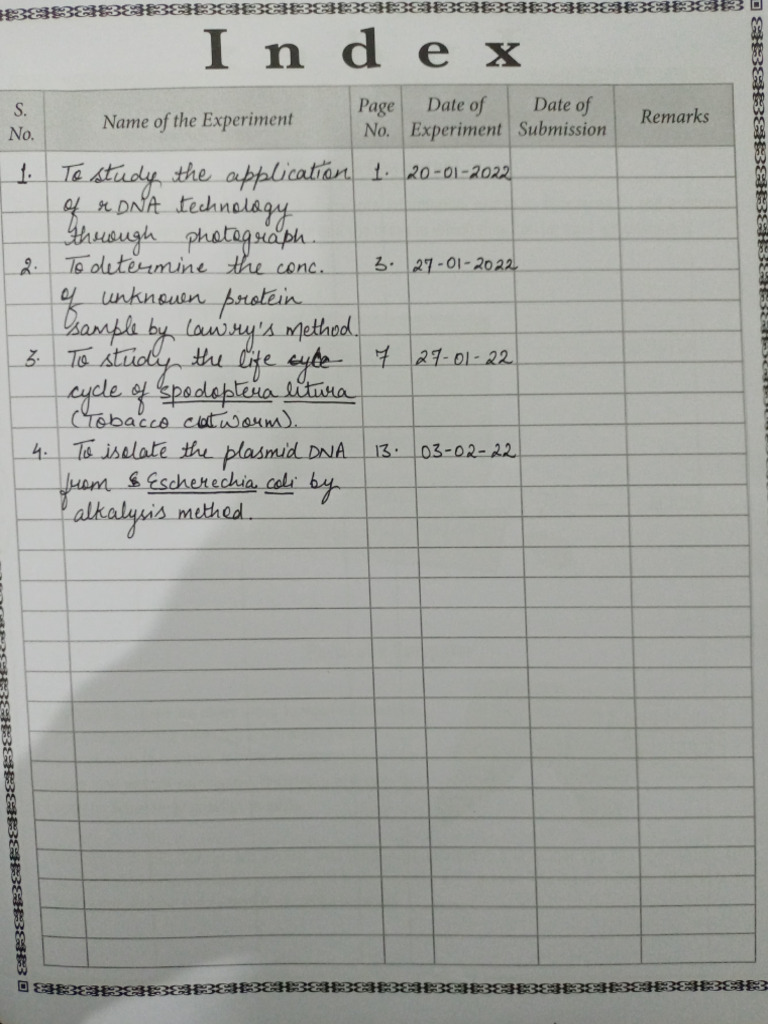 Index
S. No. Name of the Experiment Page No. Date of Experiment Date of Submission Remarks
1. To study the application 1. 20-01-2022
of rDNA technology
through photograph.
2. To determine the conc. 3. 27-01-2022
of unknown protein
sample by lawry's method.
3. To study the life cycle 7 27-01-22
cycle of spodoptera litura
(Tobacco cutworm).
4. To isolate the plasmid DNA 13. 03-02-22
from Escherechia coli by
alkalysis method.